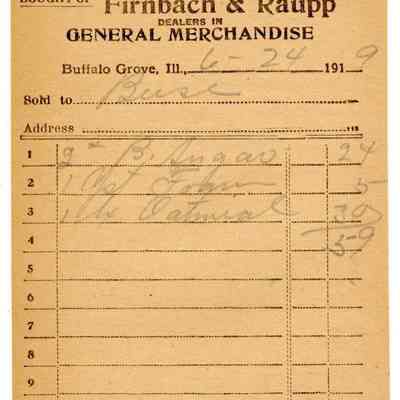 BOUGHT OF
Firnbach & Raupp
DEALERS IN
GENERAL MERCHANDISE
Buffalo Grove, Ill., 6-24 1919
Sold to Buse
Address
1 2# B. Sugar 24
2 1 5
3 1 Oatmeal 30
4 59
5
6
7
8
9